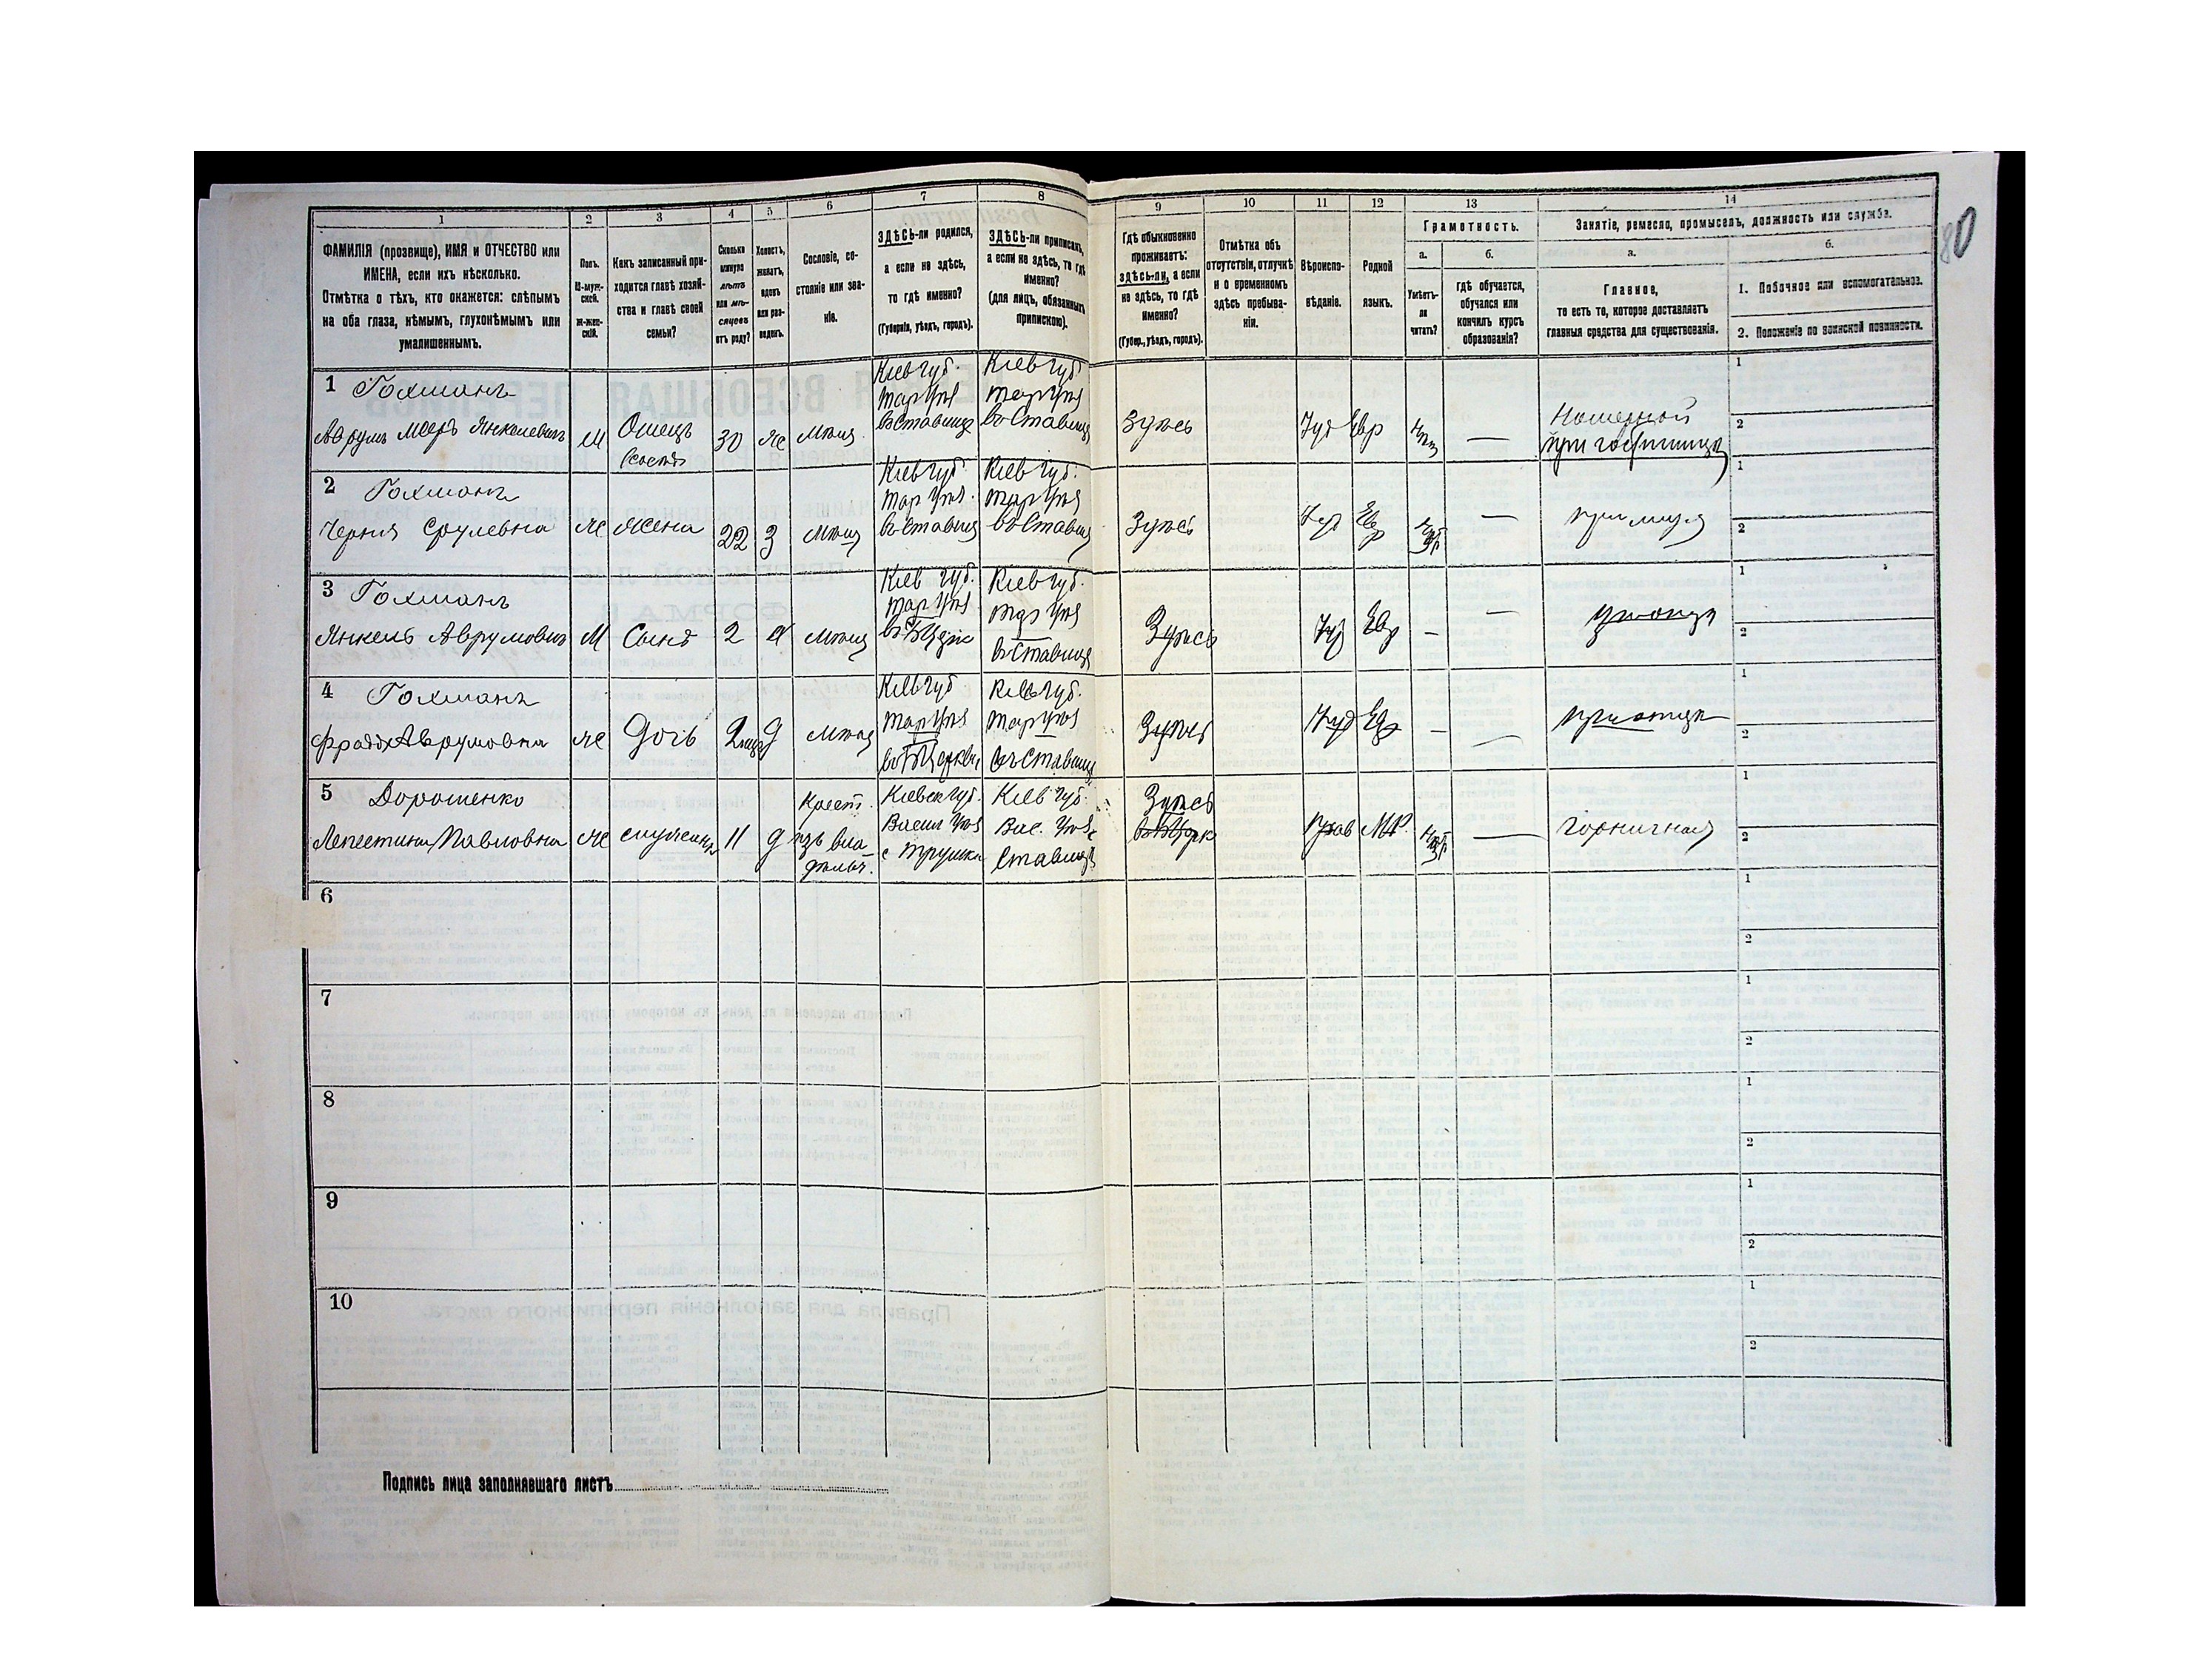 80
1
2
3
4
5
6
7
8
9
10
11
12
13
14
ФАМИЛІЯ (прозвище), ИМЯ и ОТЧЕСТВО или
ИМЕНА, если ихъ нѣсколько.
Отмѣтка о тѣхъ, кто окажется: слѣпымъ
на оба глаза, нѣмымъ, глухонѣмымъ или
умалишеннымъ.
Полъ.
М-муж-
ской.
Ж-жен-
скій.
Какъ записанный при-
ходится главѣ хозяй-
ства и главѣ своей
семьи?
Сколько
минуло
лѣтъ
или мѣ-
сяцевъ
отъ роду?
Холостъ,
женатъ,
вдовъ
или раз-
веденъ.
Сословіе, со-
стояніе или зва-
ніе.
ЗДѢСЬ-ли родился,
а если не здѣсь,
то гдѣ именно?
(Губернія, уѣздъ, городъ).
ЗДѢСЬ-ли приписанъ,
а если не здѣсь, то гдѣ
именно?
(для лицъ, обязанныхъ
припискою).
Гдѣ обыкновенно
проживаетъ:
здѣсь-ли, а если
не здѣсь, то гдѣ
именно?
(Губер., уѣздъ, городъ).
Отмѣтка объ
отсутствіи, отлучкѣ
и о временномъ
здѣсь пребыва-
ніи.
Вѣроиспо-
вѣданіе.
Родной
языкъ.
Грамотность.
а.
Умѣетъ-
ли
читать?
б.
гдѣ обучается,
обучался или
кончилъ курсъ
образованія?
Занятіе, ремесло, промыселъ, должность или служба.
а.
Главное,
то есть то, которое доставляетъ
главныя средства для существованія.
б.
1. Побочное или вспомогательное.
2. Положеніе по воинской повинности.
1 Гохманъ
Аврумъ Мееръ Янкелевичъ
М
Отецъ
30
Ж
Мѣщ
Кіев губ.
Тар уѣз
въ Ставище
Кіев губ
Тар уѣз
въ Ставищ
Здѣсь
Іуд
Евр
—
при гостинице
1
2
2 Гохманъ
Черня Срулевна
Ж
Жена
22
З
Мѣщ
Кіев губ
Тар уѣз.
въ Ставищ
Кіев губ.
Тар уѣз
въ Ставищ
Здѣсь
Іуд
Евр
—
при мужѣ
1
2
3 Гохманъ
Янкель Аврумовичъ
М
Сынъ
2
Х
Мѣщ
Кіев губ.
Тар уѣз
Кіев губ.
Тар уѣз
въ Ставищ
Здѣсь
Іуд
Евр
–
—
у отца
1
2
4 Гохманъ
Аврумовна
Ж
Дочь
Д
Мѣщ
Кіев губ
Тар уѣз
въ Б Церкви
Кіев губ.
Тар уѣз
въ Ставищ
Здѣсь
Іуд
Евр
–
—
при отцѣ
1
2
5 Дорошенко
Павловна
Ж
служанка
11
Д
Крест.
изъ вла-
дѣльч.
Кіевск губ.
Васил уѣз
с Трушки
Кіев губ
Вас. уѣз
Ставищ
Здѣсь
Прав
МР.
—
горничная
1
2
6
1
2
7
1
2
8
1
2
9
1
2
10
1
2
Подпись лица заполнявшаго листъ